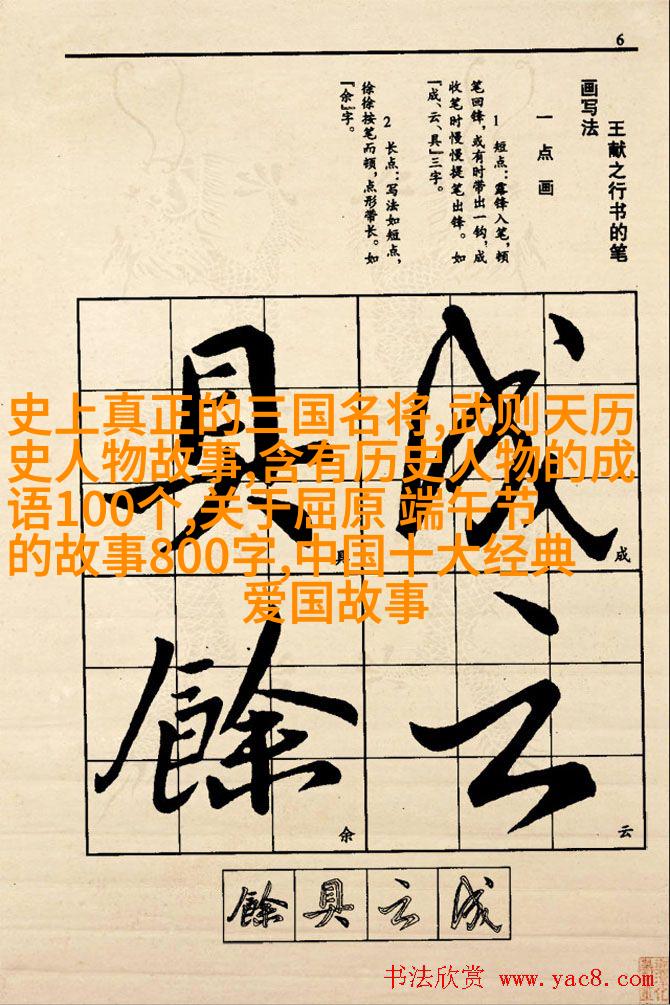 6
王献之行书的笔
画写法
一点画
1 短点：露锋入笔，顿
笔回锋，或有时带出一钩，成
收笔时慢慢提笔出锋。如
『成、云、具』三字。
2 长点：写法如短点，
徐徐按笔而顿，点形带长。如
『余』字。
成
成
云
云
具
具
餘
余
史上真正的三国名将,武则天历
史人物故事,含有历史人物的成
语100个,关于屈原 端午节
的故事800字,中国十大经典
爱国故事
餘具云成
书法欣赏 www.yac8.com